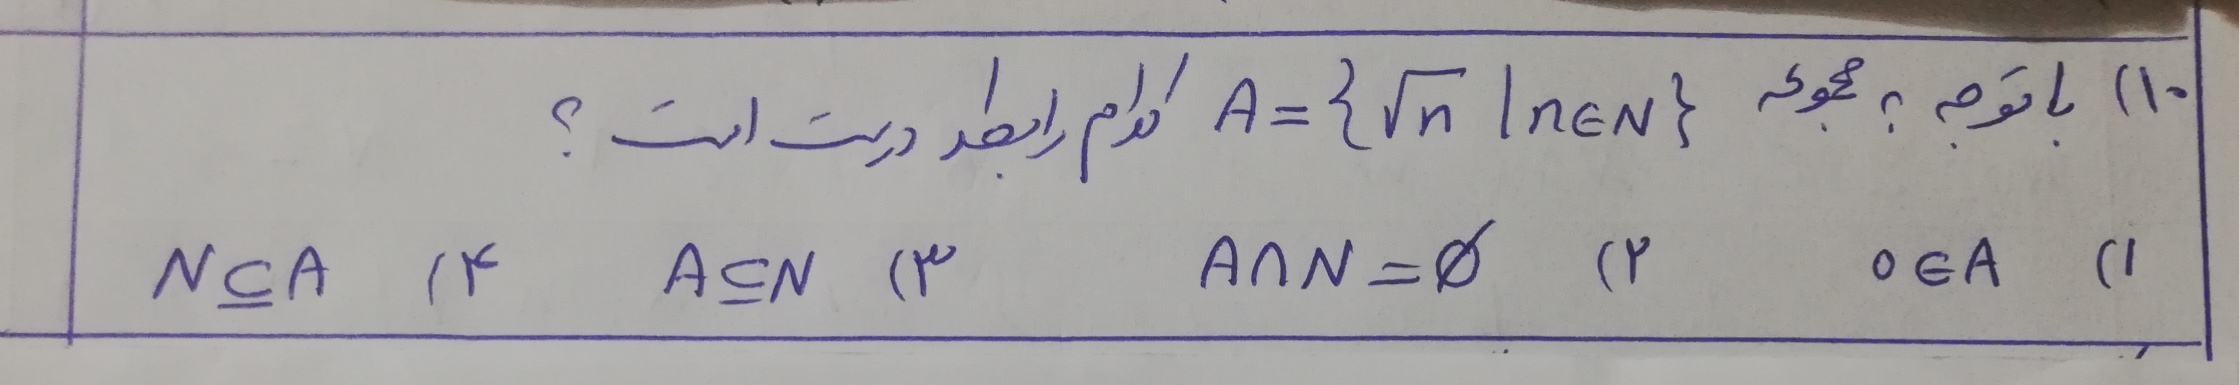 ۱۰) با توجه به مجموعه A = {√n | n ∈ N} کدام رابطه درست است ؟
۱) ۰ ∈ A ۲) A ∩ N = ∅ ۳) A ⊆ N ۴) N ⊆ A